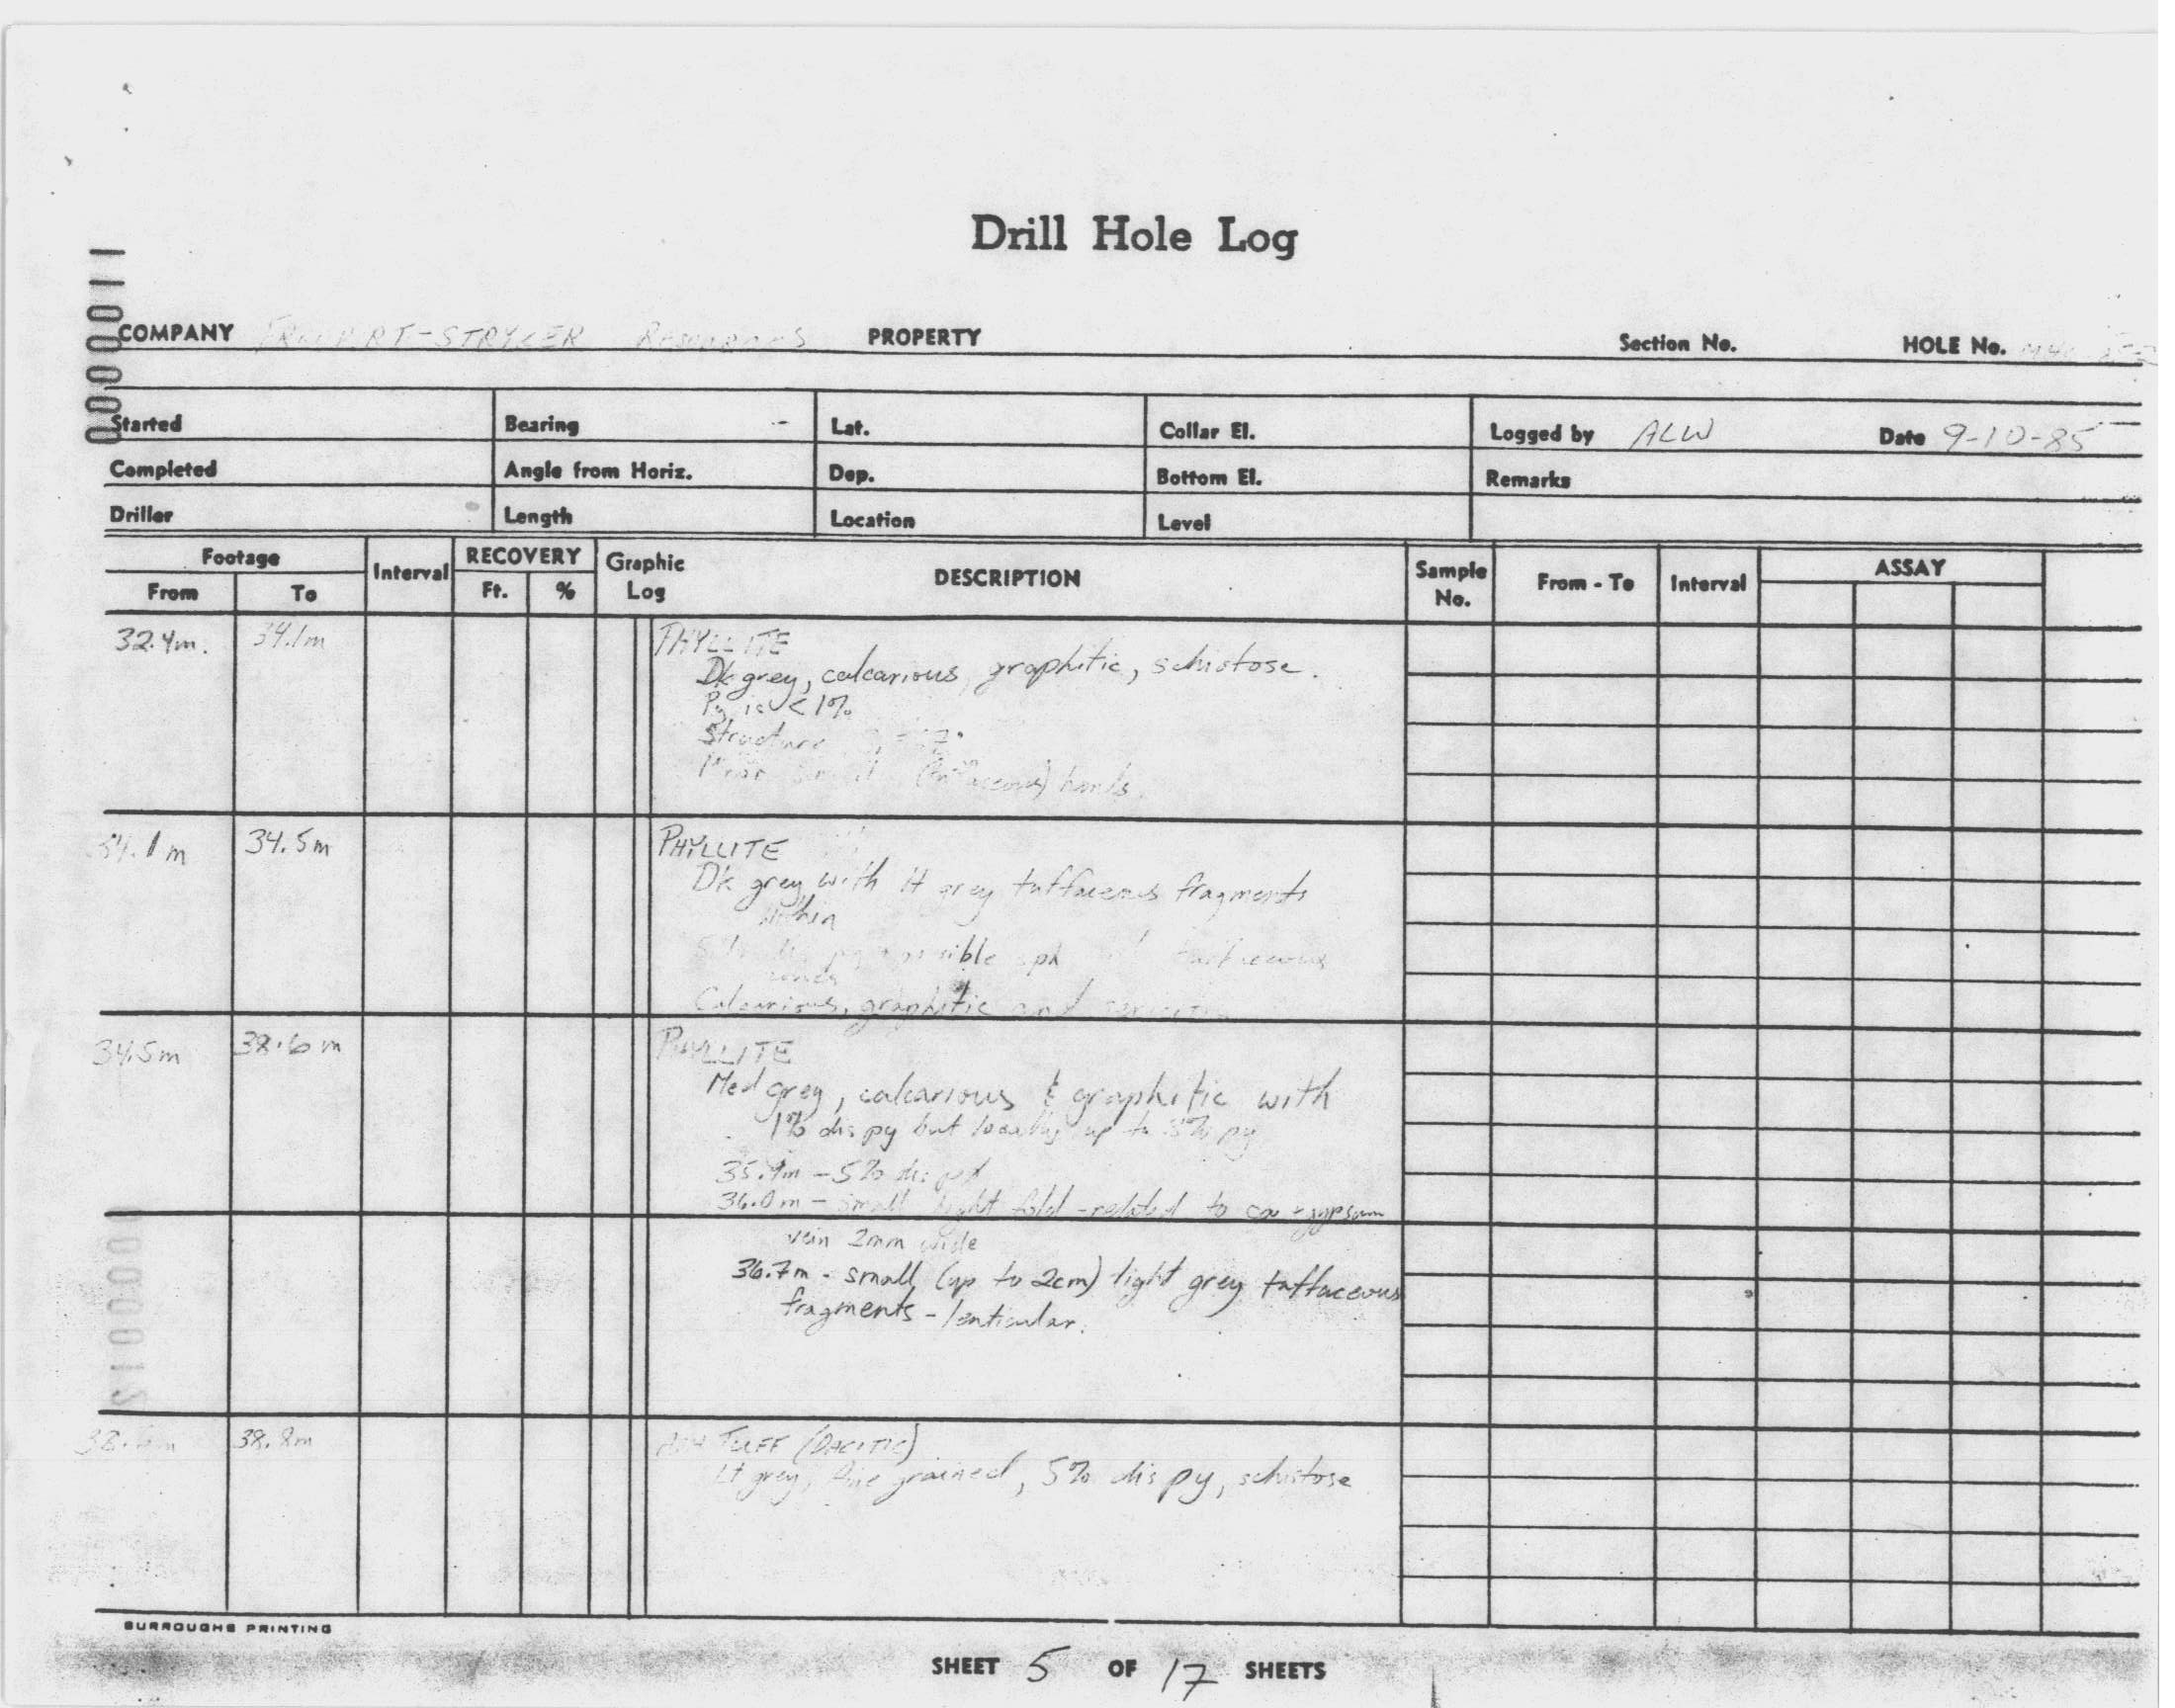 Drill Hole Log
0000011
COMPANY STRYKER RESOURCES PROPERTY Section No. HOLE No.
Started Bearing Lat. Collar El. Logged by ALW Date 9-10-85
Completed Angle from Horiz. Dep. Bottom El. Remarks
Driller Length Location Level
Footage Interval RECOVERY Graphic Log DESCRIPTION Sample No. From - To Interval ASSAY
From To Ft. %
32.4m. 34.1m PHYLLITE
Dk grey, calcarious, graphitic, schistose.
Py is < 1%
Structure
(tuffaceous) bands.
34.1m 34.5m PHYLLITE
Dk grey with lt grey tuffaceous fragments
within
possible sph tuffaceous
Calcarious, graphitic and
34.5m 38.6m PHYLLITE
Med grey, calcarious & graphitic with
1% dis py but locally up to 5% py
35.4m - 5% dis py
36.0m - small tight fold - related to ca + gypsum
vein 2mm wide
36.7m - small (up to 2cm) light grey tuffaceous
fragments - lenticular.
0000012
38.6m 38.8m ASH TUFF (DACITIC)
Lt grey, fine grained, 5% dis py, schistose
BURROUGHS PRINTING
SHEET 5 OF 17 SHEETS